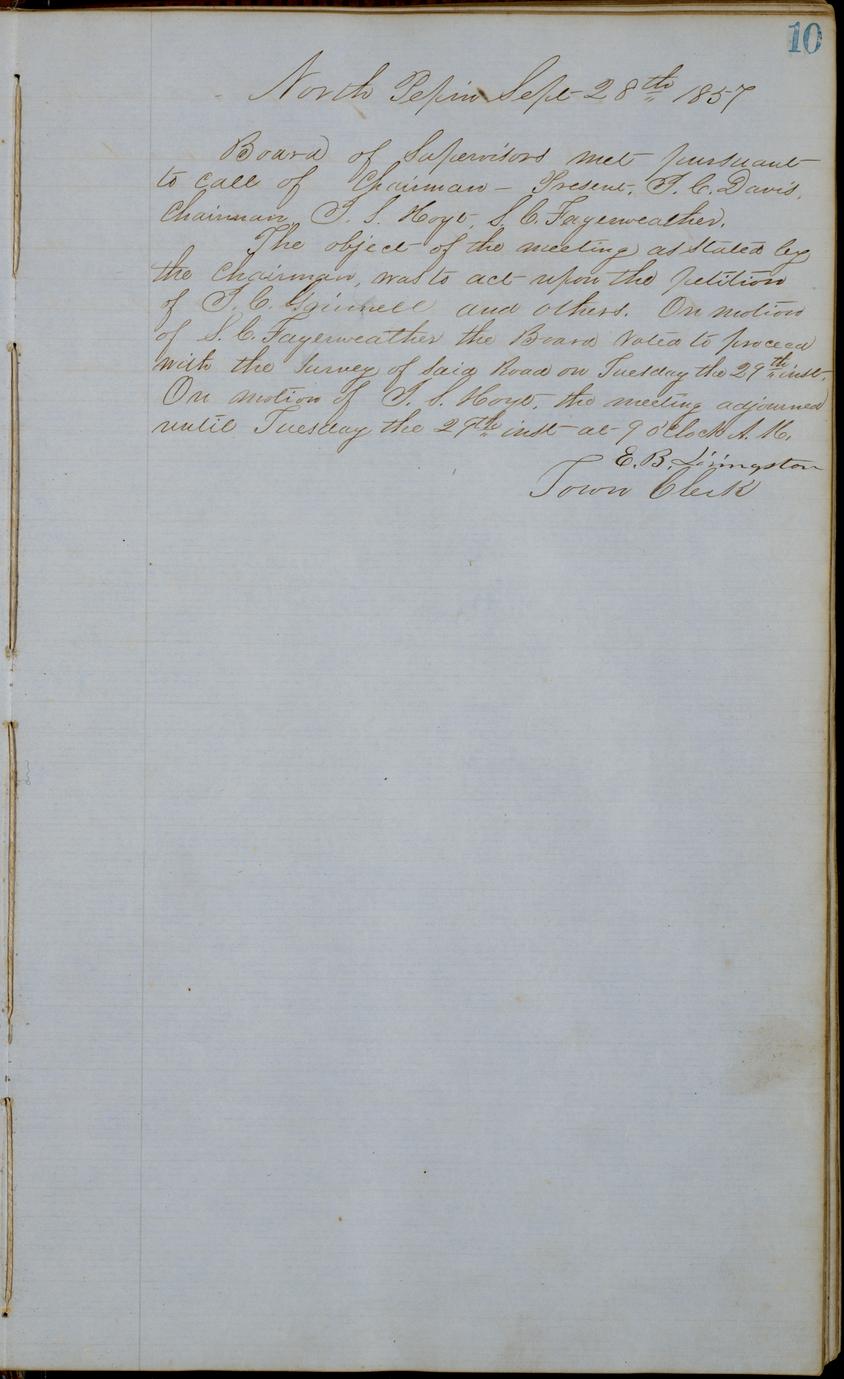 10
North Pepin Sept 28th 1857
Board of Supervisors met pursuant
to call of Chairman - Present, T. C. Davis,
Chairman, T. S. Hoyt, S. C. Fayerweather.
The object of the meeting as stated by
the Chairman, was to act upon the petition
of T. C. Grinnell and others. On motion
of S. C. Fayerweather the Board voted to proceed
with the Survey of said Road on Tuesday the 29th inst.
On motion of T. S. Hoyt, the meeting adjourned
until Tuesday the 29th inst at 9 o'clock A. M.
E. B. Livingston
Town Clerk